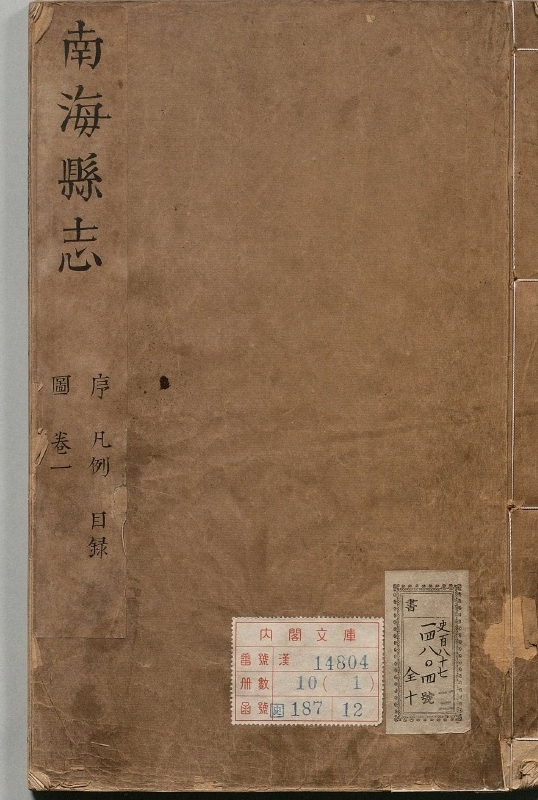 南海縣志
序 凡例 目録
圖 卷一
內閣文庫
番號 漢 14804
册數 10( 1 )
函號 187 12
書
史百八十七
一四八〇四號
全十